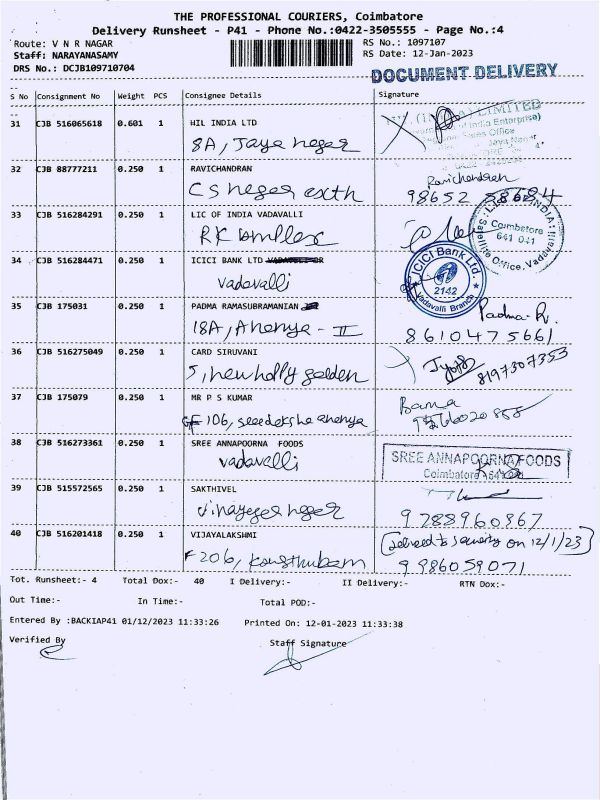 THE PROFESSIONAL COURIERS, Coimbatore
Delivery Runsheet - P41 - Phone No.:0422-3505555 - Page No.:4
Route: V N R NAGAR RS No.: 1097107
Staff: NARAYANASAMY RS Date: 12-Jan-2023
DRS No.: DCJB109710704
DOCUMENT DELIVERY
S No Consignment No Weight PCS Consignee Details Signature
31 CJB 516065618 0.601 1 HIL INDIA LTD
8A, Jaya neger
(I) LIMITED
of India Enterprise)
Sales Office
Jaya Nagar
32 CJB 88777211 0.250 1 RAVICHANDRAN Ravichandran
CS neger exth 98652 58684
33 CJB 516284291 0.250 1 LIC OF INDIA VADAVALLI
RK
INDIA
Coimbatore
641 041
Satellite Office, Vadavalli
34 CJB 516284471 0.250 1 ICICI BANK LTD
vadavalli
ICICI Bank Ltd
2142
Vadavalli Branch
35 CJB 175031 0.250 1 PADMA RAMASUBRAMANIAN Padma. R.
18A, Ananya - II 8610475661
36 CJB 516275049 0.250 1 CARD SIRUVANI
5, new holly golden 8197307353
37 CJB 175079 0.250 1 MR P S KUMAR Bama
GF 106,
38 CJB 516273361 0.250 1 SREE ANNAPOORNA FOODS
vadavalli
SREE ANNAPOORNA FOODS
Coimbatore
39 CJB 515572565 0.250 1 SAKTHIVEL
vinayeger neger 9788960367
40 CJB 516201418 0.250 1 VIJAYALAKSHMI (delivered to security on 12/1/23)
F 206, Kousthubam 9986059071
Tot. Runsheet:- 4 Total Dox:- 40 I Delivery:- II Delivery:- RTN Dox:-
Out Time:- In Time:- Total POD:-
Entered By :BACKIAP41 01/12/2023 11:33:26 Printed On: 12-01-2023 11:33:38
Verified By Staff Signature